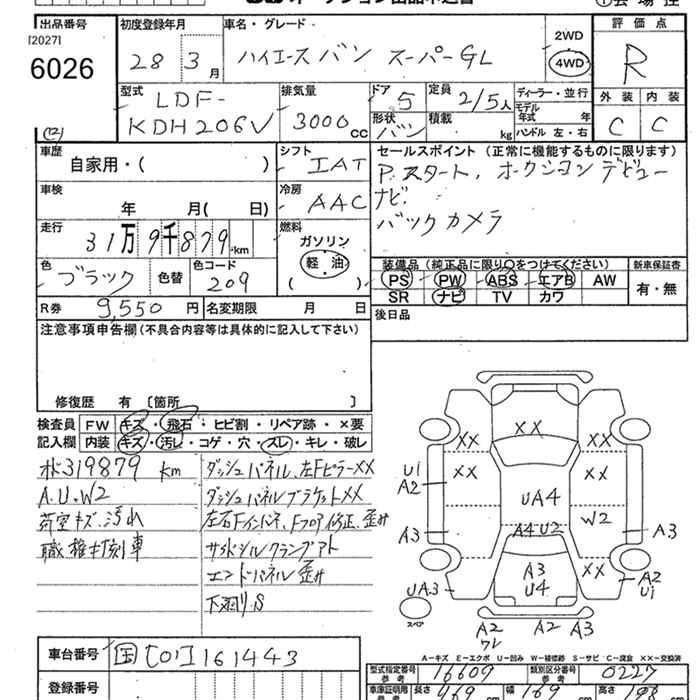 出品番号 初度登録年月 車名・グレード 評価点
[2027]
6026
28 3月 ハイエースバン スーパーGL 2WD 4WD R
型式 LDF-KDH206V 排気量 3000cc ドア 5 定員 2/5人 ディーラー・並行
形状 バン 積載 kg モデル年式 年 ハンドル 左・右
外装 内装
C C
車歴 自家用・( ) シフト IAT セールスポイント (正常に機能するものに限ります)
車検 年 月( 日) 冷房 AAC
P.スタート,
ナビ
バックカメラ
走行 31万9千879km 燃料 ガソリン 軽・油 ( )
色 ブラック 色替 色コード 209
装備品 (純正品に限り○をつけてください) 新車保証書
PS PW ABS エアB AW 有・無
SR ナビ TV カワ
R券 9,550円 名変期限 月 日 後日品
注意事項申告欄(不具合内容等は具体的に記入して下さい)
修復歴 有 〔箇所 〕
検査員 FW キズ・飛石・ヒビ割・リペア跡・×要
記入欄 内装 キズ・汚レ・コゲ・穴・スレ・キレ・破レ
319879 km ダッシュパネル、左Fピラー××
A.U.W2 ダッシュパネルブラケット××
荷室キズ、汚れ 左右Fインパネ、Fフロア修正、歪み
職権打刻車 サイドシルクランプアト
エンドパネル歪み
下廻りS
×× ×× ××
U1 A2 ×× UA4 ××
A3 A4U2 W2 A3
UA3 A3 U4 ×× A2 U1
スペア A2 ワレ A2 A3
A-キズ E-エクボ U-凹み W-補修跡 S-サビ C-腐食 ××-交換済
車台番号 国[01]161443
登録番号
型式指定番号 参考 16609 類別区分番号 参考 0227
車庫証明用 参考 長さ 469 cm 幅 169 cm 高さ 198 cm